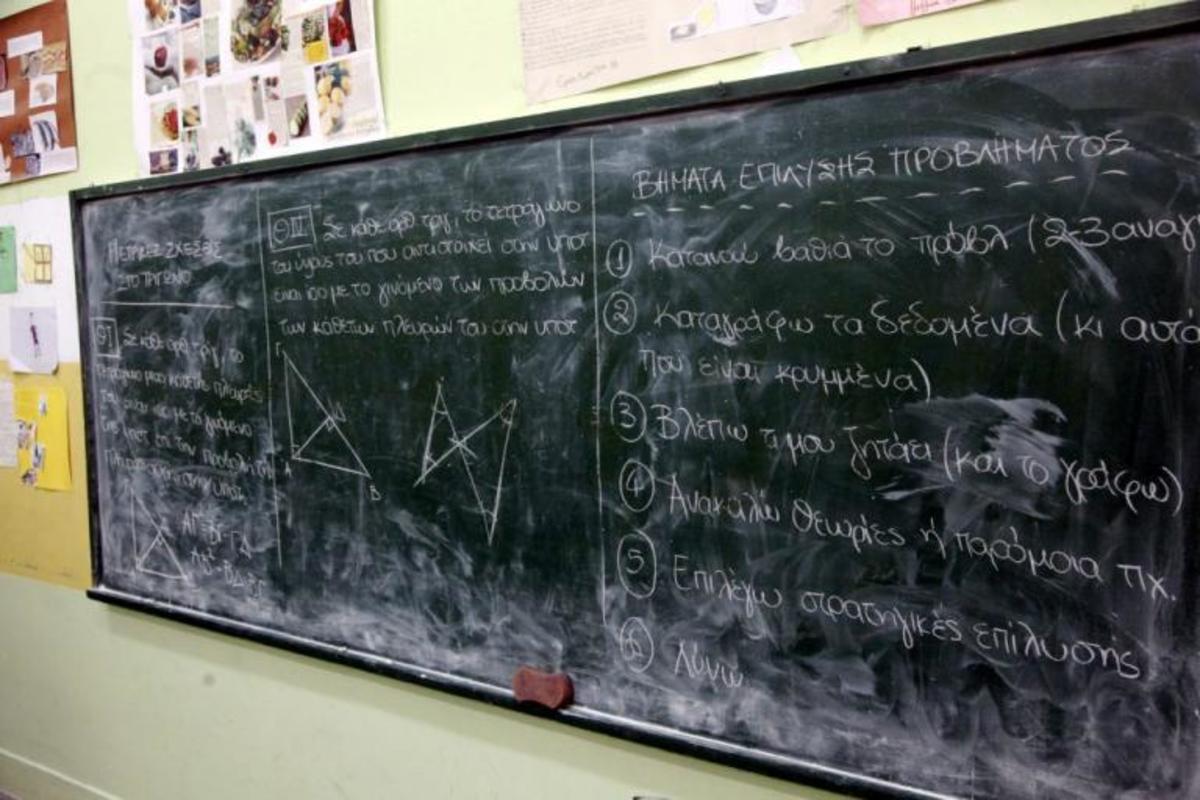 ΜΕΤΡΙΚΕΣ ΣΧΕΣΕΙΣ
ΣΤΟ ΤΡΙΓΩΝΟ
ΘΙ Σε κάθε ορθ τριγ, το
τετράγωνο μιας κάθετης πλευράς
του είναι ίσο με το γινόμενο
της υποτ επί την προβολή της
πλευράς αυτής στην υποτ.
Α
Β
Γ
ΘΙΙ Σε κάθε ορθ τριγ, το τετράγωνο
του ύψους του που αντιστοιχεί στην υποτ
είναι ίσο με το γινόμενο των προβολών
των κάθετων πλευρών του στην υποτ
ΒΗΜΑΤΑ ΕΠΙΛΥΣΗΣ ΠΡΟΒΛΗΜΑΤΟΣ
1 Κατανοώ βαθιά το πρόβλ (2-3 αναγ
2 Καταγράφω τα δεδομένα (κι αυτά
που είναι κρυμμένα)
3 Βλέπω τι μου ζητάει (και το γράφω)
4 Ανακαλώ θεωρίες ή παρόμοια πχ.
5 Επιλέγω στρατηγικές επίλυσής
6 Λύνω